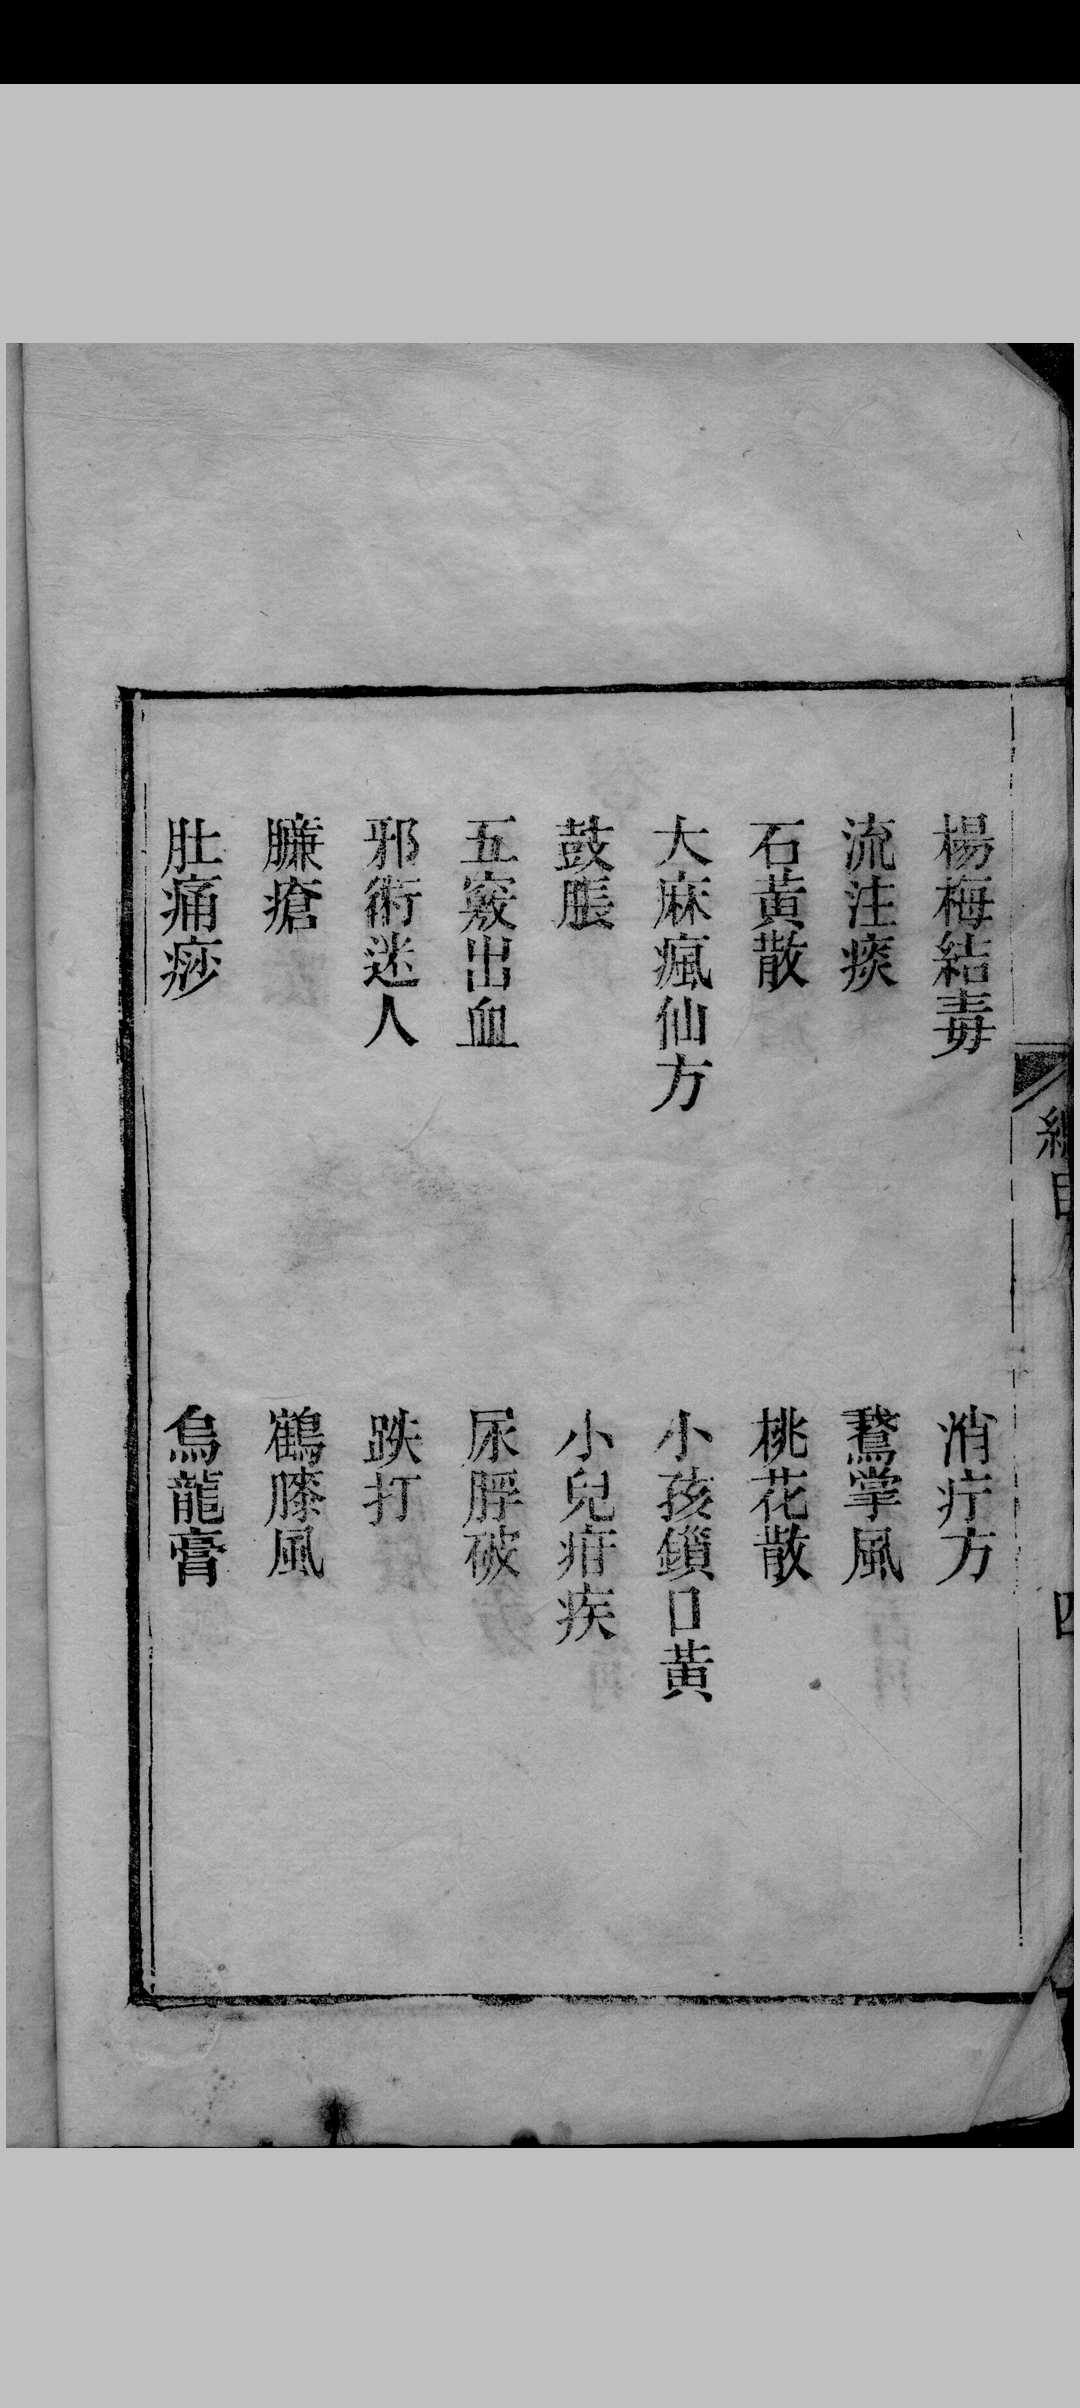 楊梅結毒
消疔方
流注痰
鵞掌風
石黃散
桃花散
大麻瘋仙方
小孩鎖口黃
鼓脹
小兒疳疾
五竅出血
尿脬破
邪術迷人
跌打
臁瘡
鶴膝風
肚痛痧
烏龍膏
總目
四